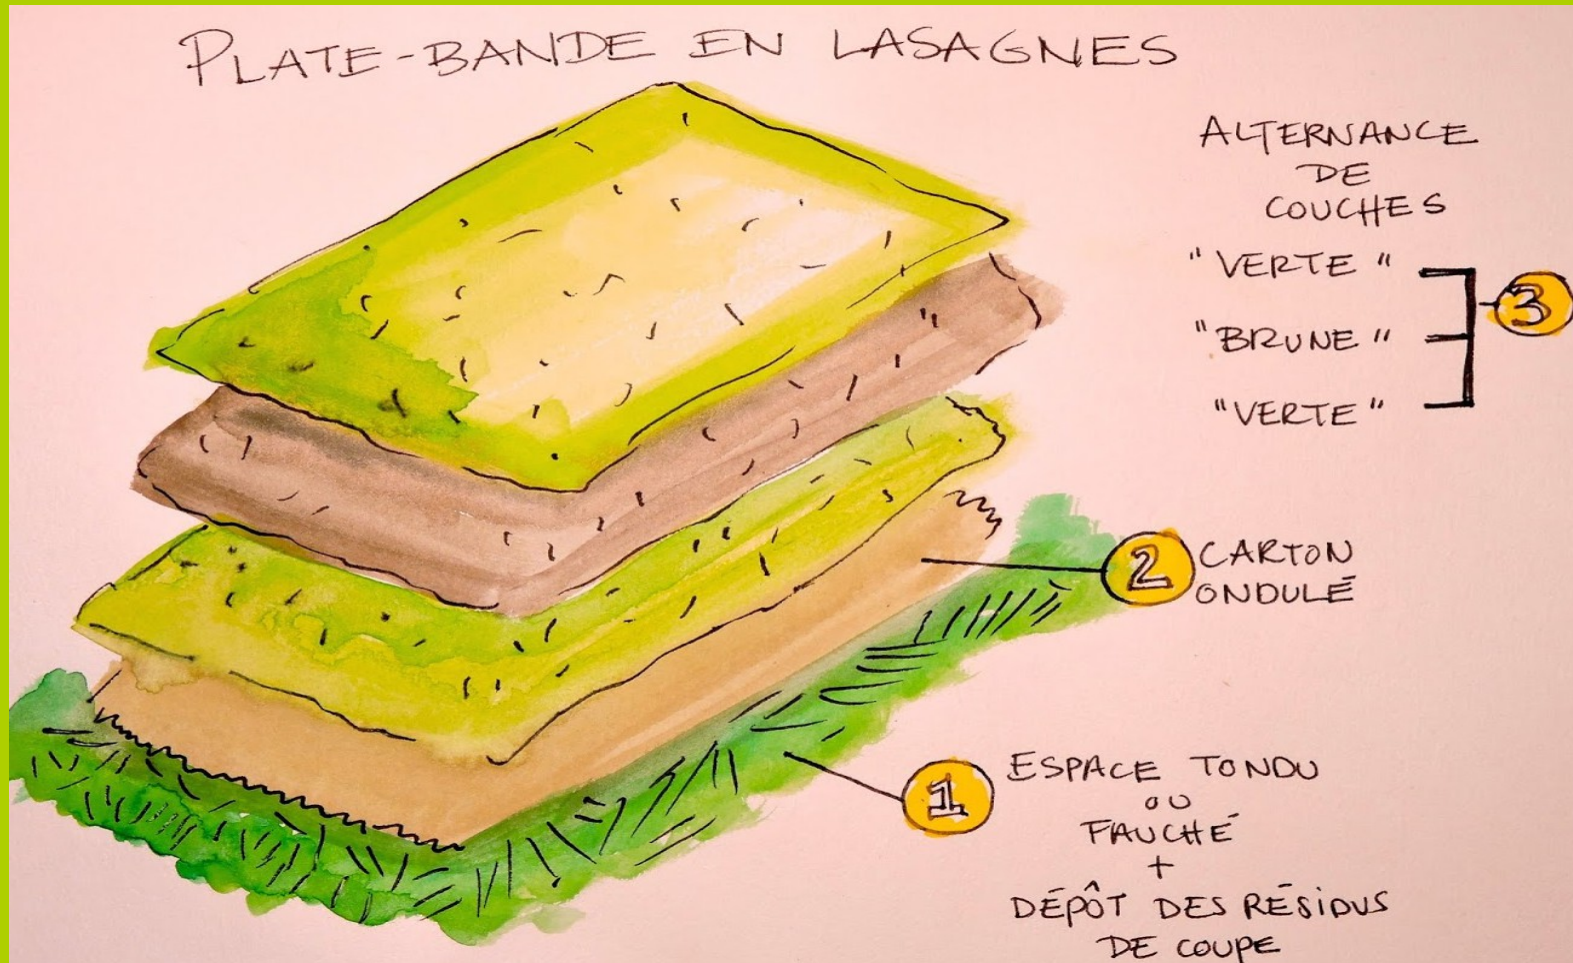 PLATE-BANDE EN LASAGNES
ALTERNANCE
DE
COUCHES
"VERTE"
"BRUNE"
"VERTE"
3
2
CARTON
ONDULÉ
1
ESPACE TONDU
OU
FAUCHÉ
+
DÉPÔT DES RÉSIDUS
DE COUPE